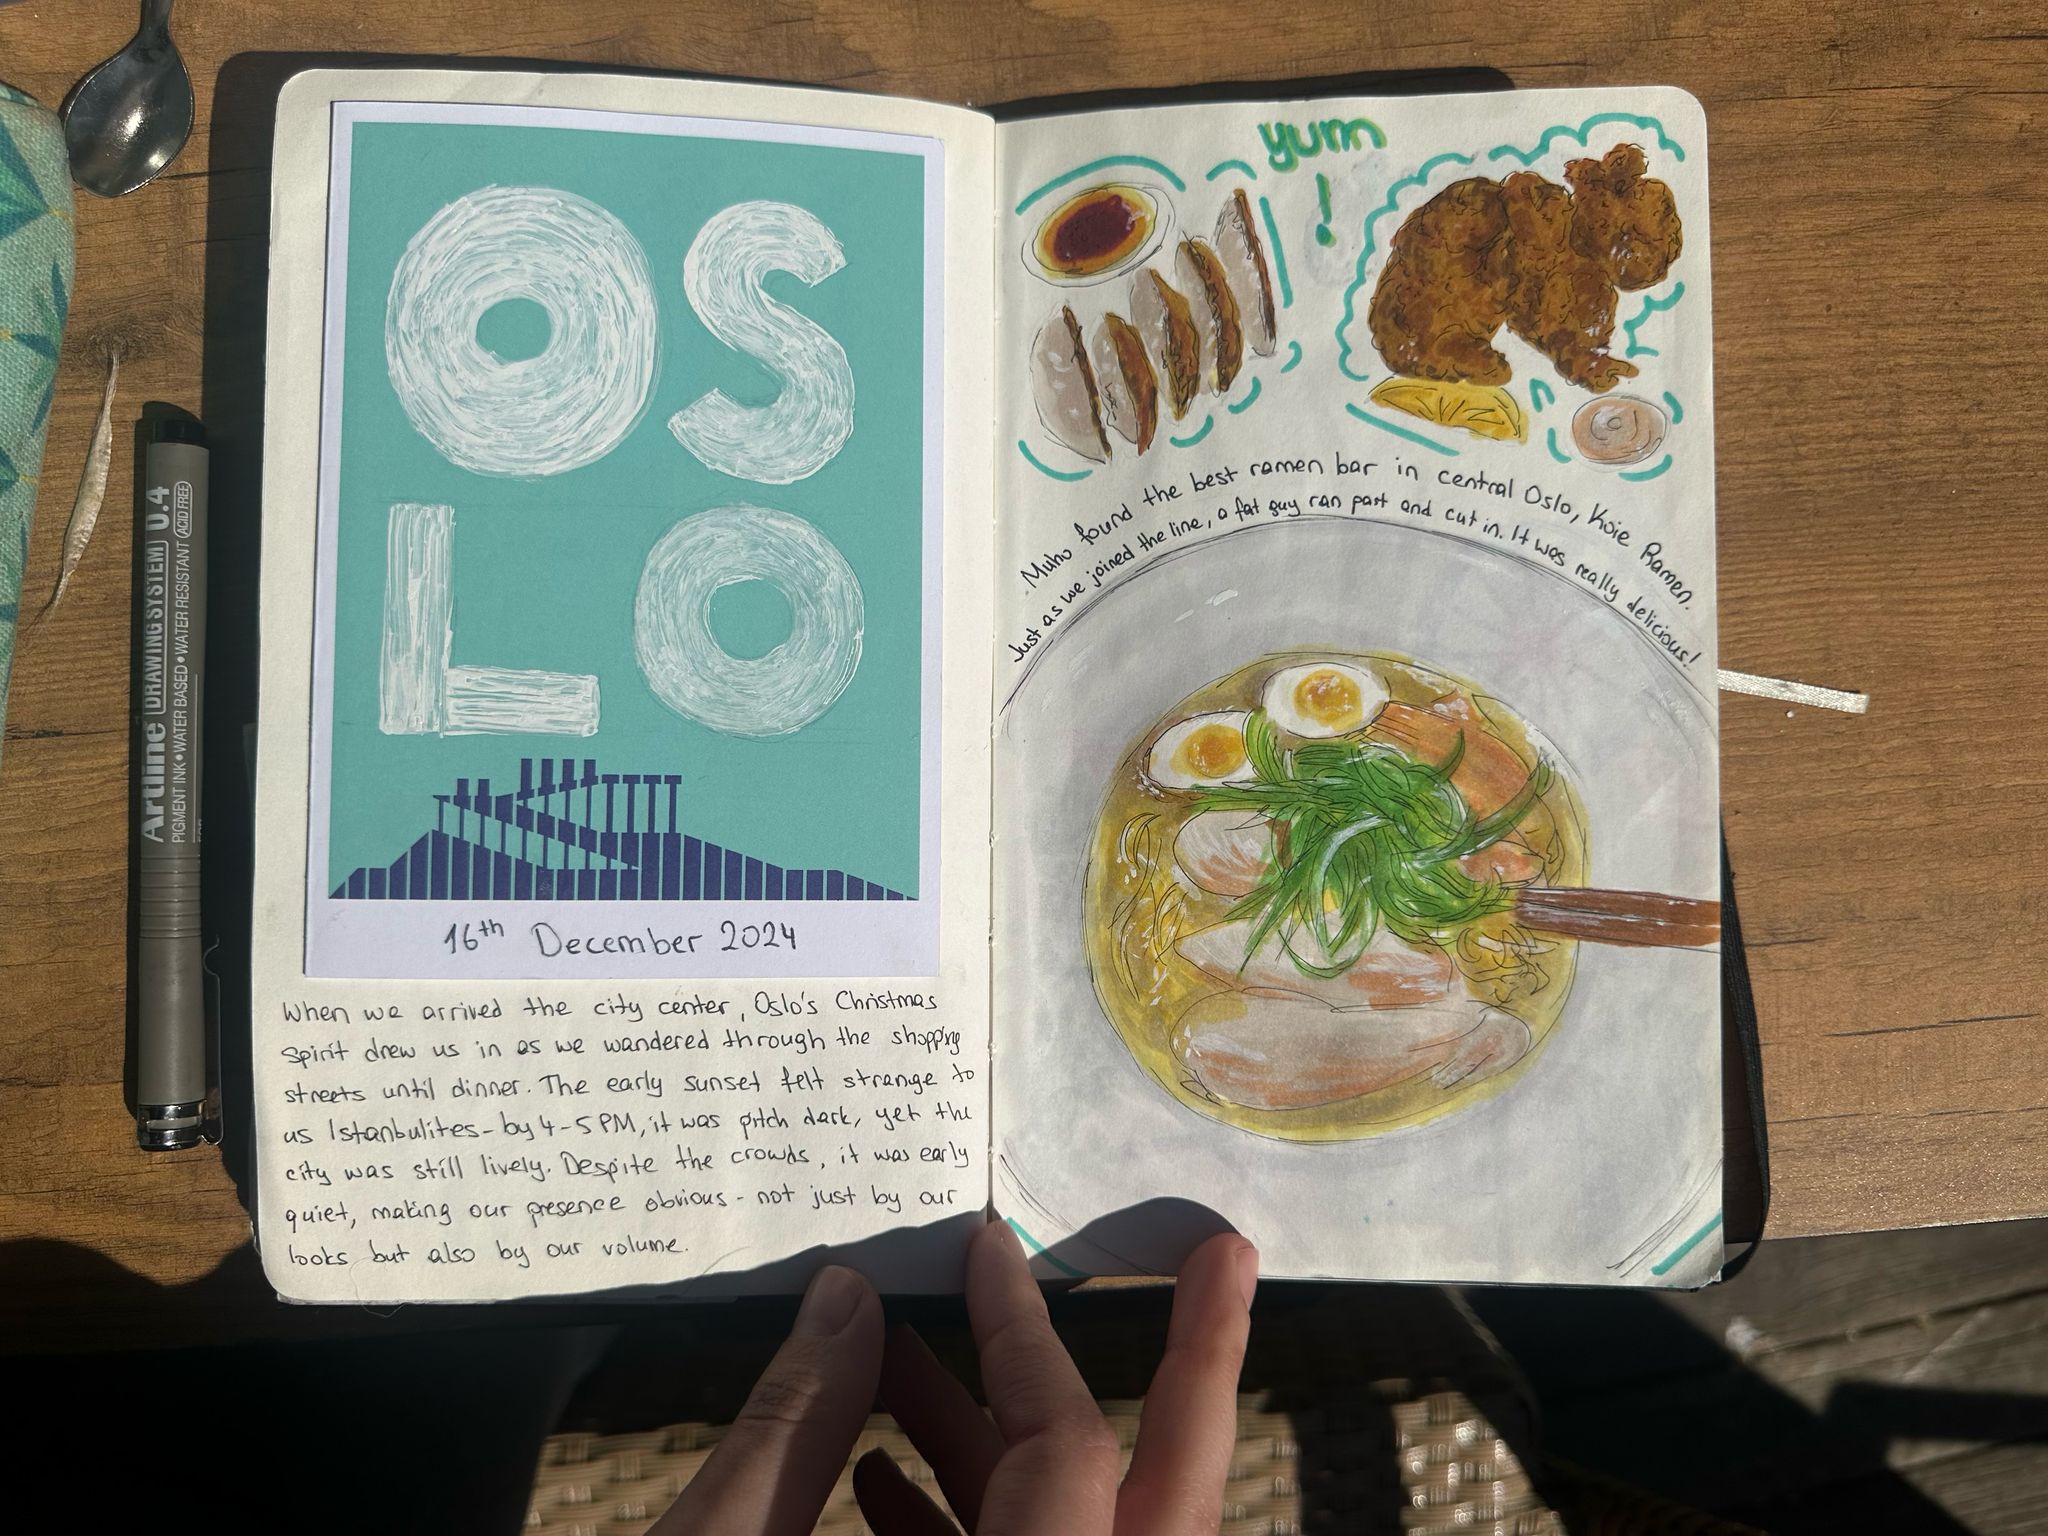 OS
LO
16th December 2024
When we arrived the city center, Oslo's Christmas
Spirit drew us in as we wandered through the shopping
streets until dinner. The early sunset felt strange to
us Istanbulites - by 4-5 PM, it was pitch dark, yet the
city was still lively. Despite the crowds, it was early
quiet, making our presence obvious - not just by our
looks but also by our volume.
yum
!
Muho found the best ramen bar in central Oslo, Koie Ramen.
Just as we joined the line, a fat guy ran past and cut in. It was really delicious!
Artline DRAWING SYSTEM 0.4
PIGMENT INK • WATER BASED • WATER RESISTANT ACID FREE